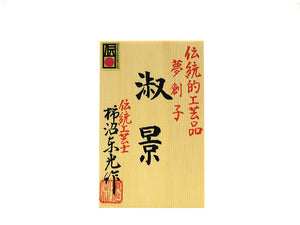 伝統的工芸品
夢創子
淑景
伝統工芸士
柿沼东光作
伝